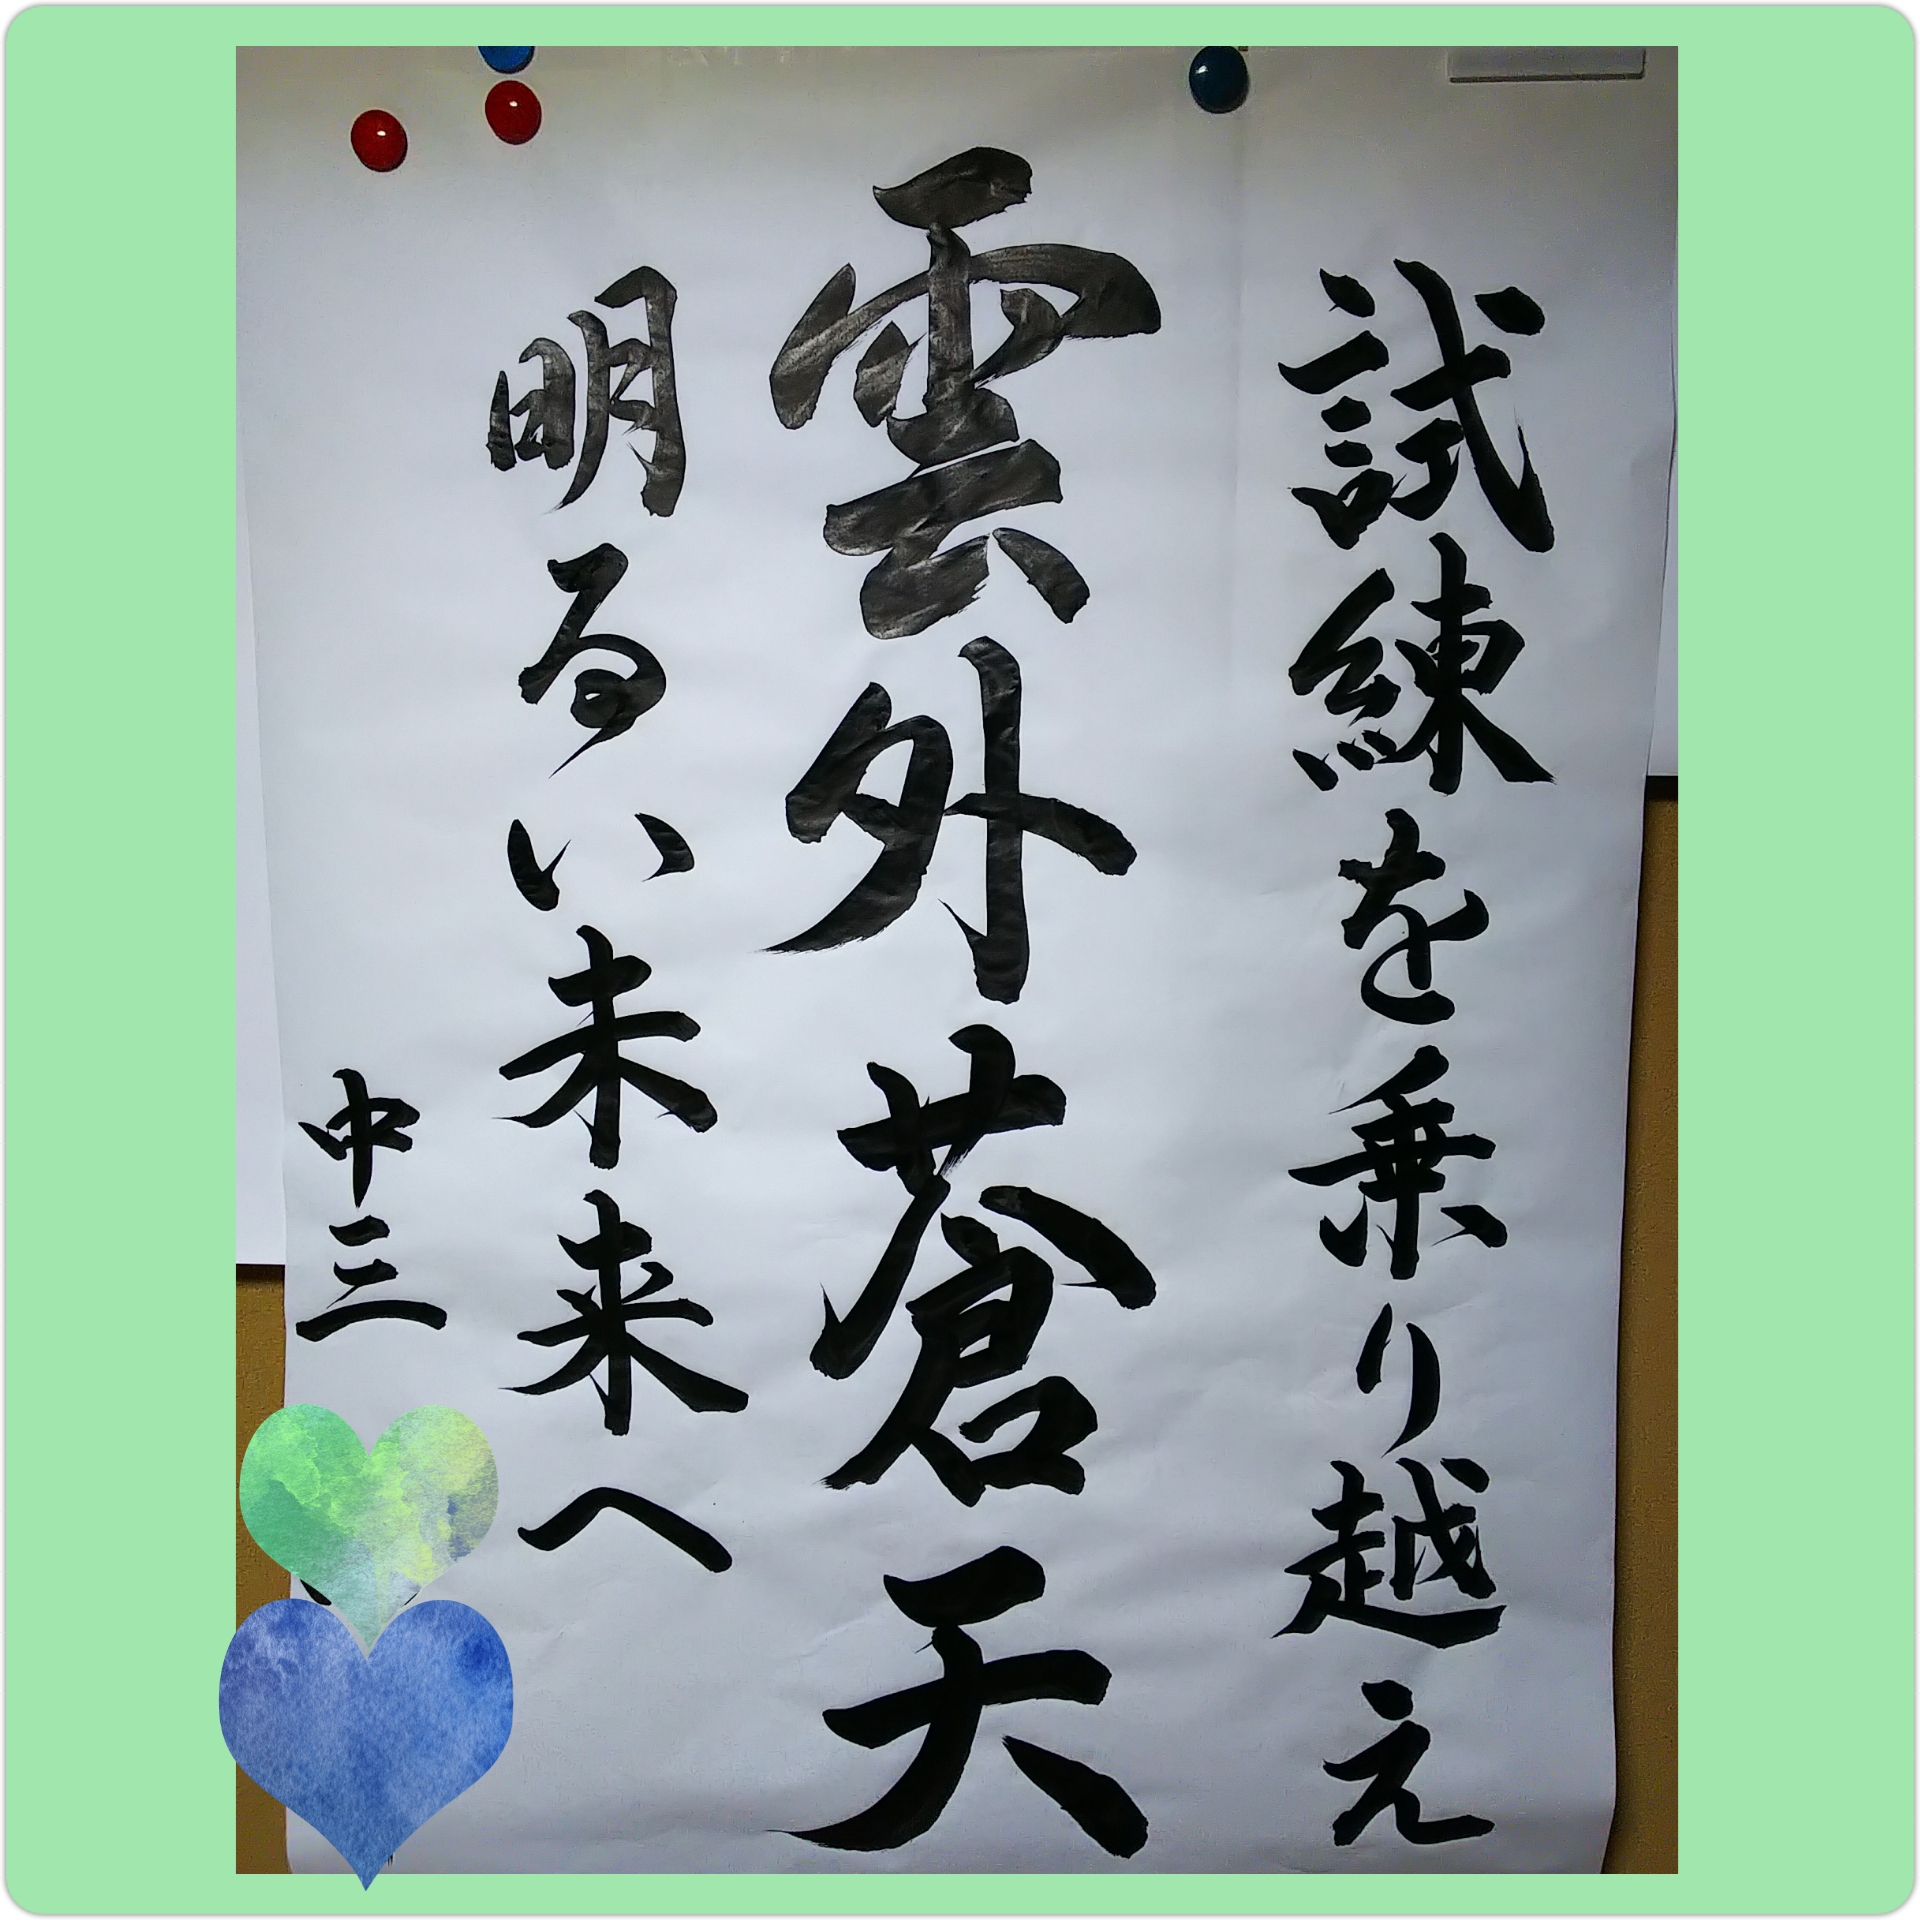 試練を乗り越え
雲外蒼天
明るい未来へ
中三